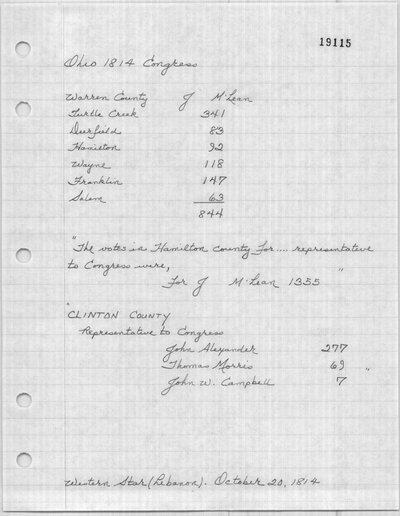 19115
Ohio 1814 Congress
Warren County J McLean
Turtle Creek 341
Deerfield 83
Hamilton 92
Wayne 118
Franklin 147
Salem 63
844
"The votes in Hamilton County for .... representative
to Congress were,
For J McLean 1355 "
"
CLINTON COUNTY
Representative to Congress
John Alexander 277
Thomas Morris 69 "
John W. Campbell 7
Western Star (Lebanon). October 20, 1814